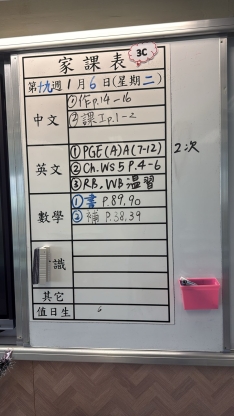 家課表
3C
第十九週1月6日(星期二)
中文
①作p.14-16
②課工p.1-2
英文
①PGE(A)A(7-12) 2次
②Ch.WS 5 P.4-6
③RB, WB 溫習
數學
①書 P.89,90
②補 P.38,39
識
其它
值日生